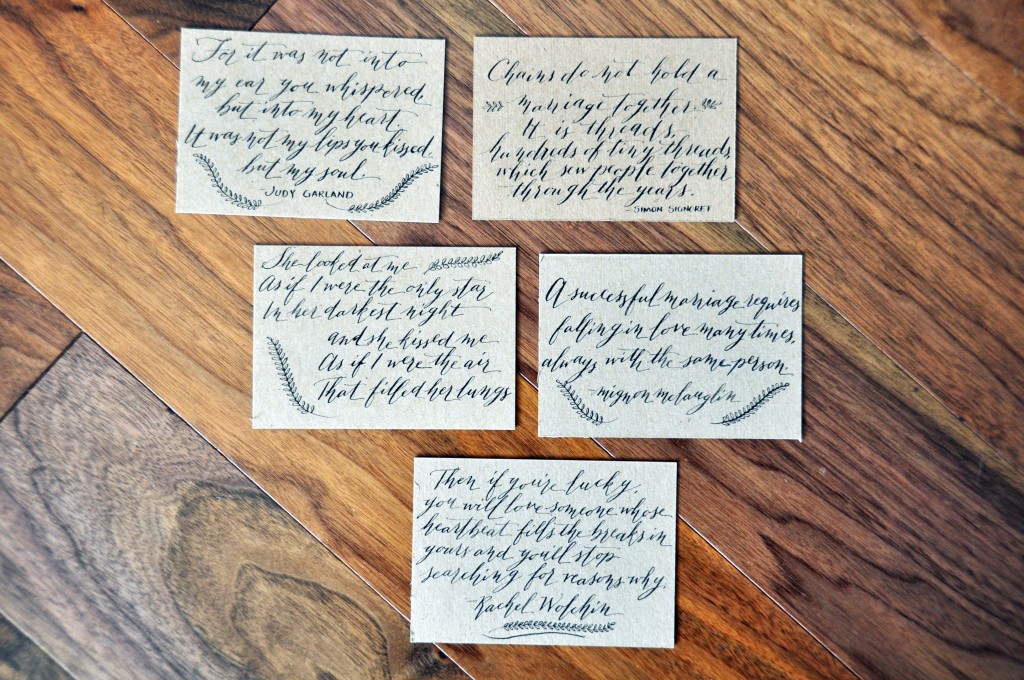 For it was not into
my ear you whispered
but into my heart
It was not my lips you kissed,
but my soul
-JUDY GARLAND
Chains do not hold a
marriage together.
It is threads,
hundreds of tiny threads
which sew people together
through the years.
-SIMON SIGNORET
She looked at me
As if I were the only star
In her darkest night
and she kissed me
As if I were the air
That filled her lungs
A successful marriage requires
falling in love many times,
always with the same person.
-mignon mclauglin
Then if you're lucky,
you will love someone whose
heartbeat fills the breaks in
yours and you'll stop
searching for reasons why.
-Rachel Wolchin